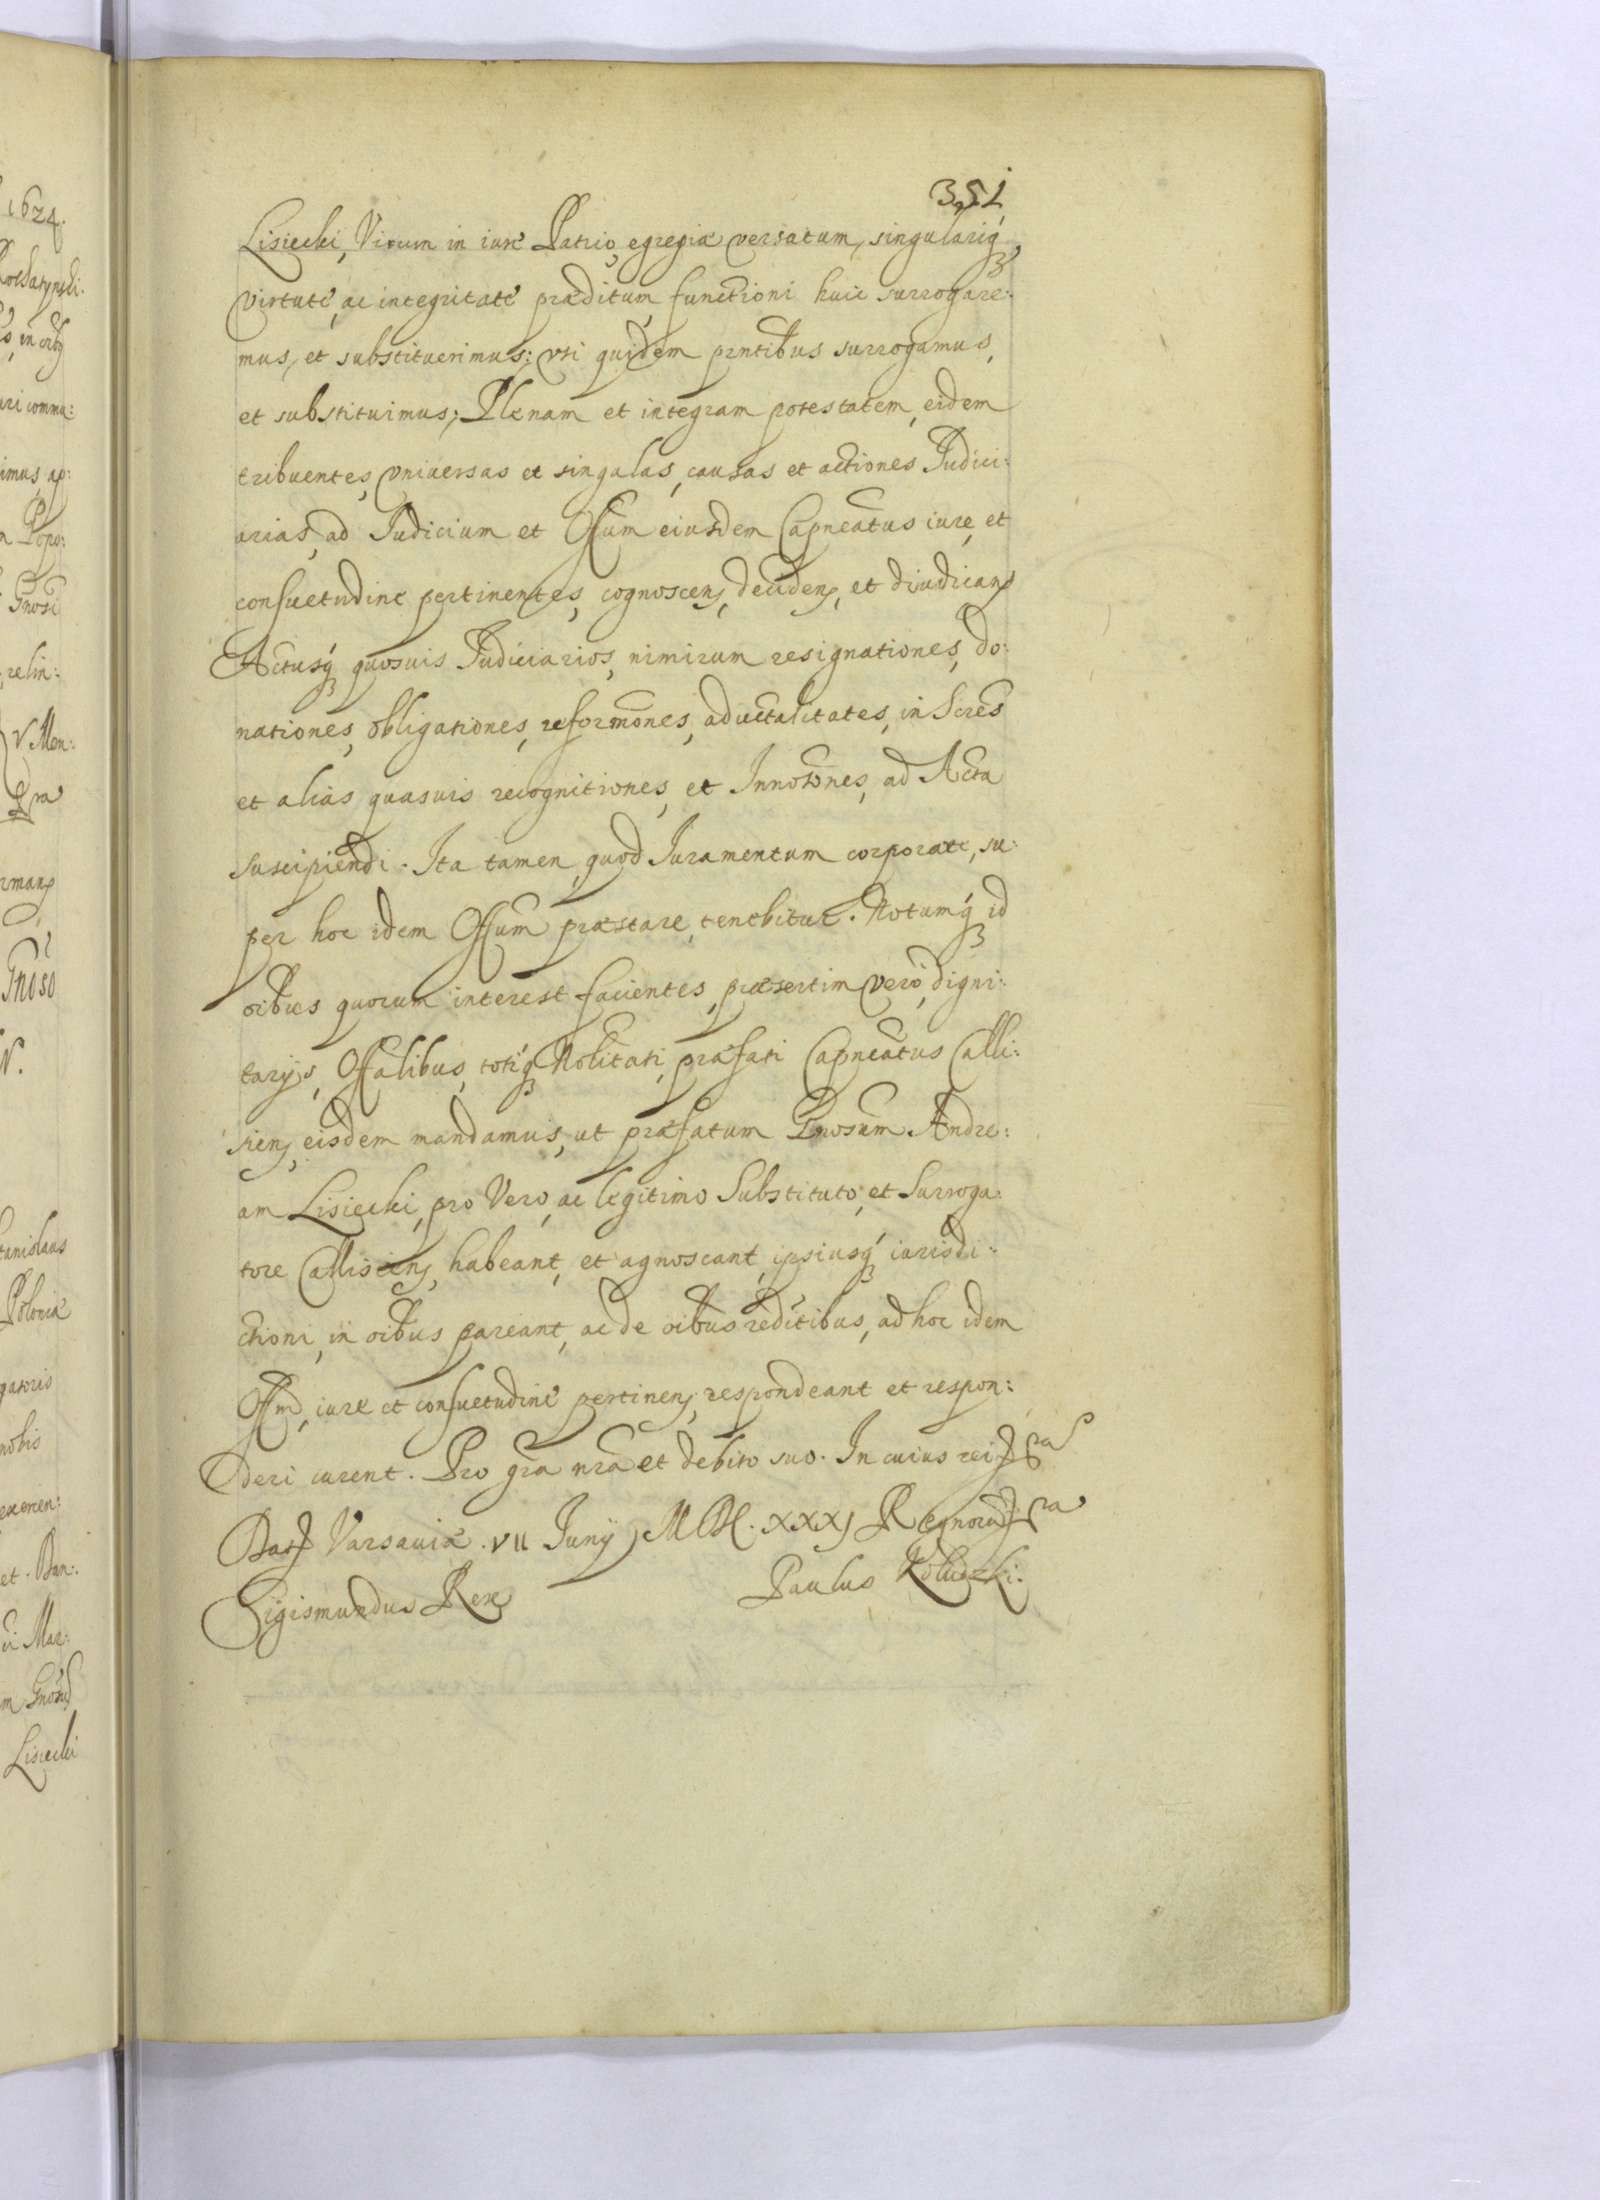 351
Lisiecki, Virum in iure Patrio, egregiæ versatum, singulariq3
virtute, ac integritate præditum, functioni huic surrogare:
mus, et substituerimus: vti quidem pрntibus surrogamus,
et substituimus; Plenam et integram potestatem, eidem
tribuentes, vniuersas et singulas, causas et actiones Judici:
arias, ad Judicium et Offum eiusdem Capneatus iure, et
consuetudine pertinentes, cognoscen, deciden, et diiudican
Actusq3 quosuis Judiciarios, nimirum resignationes, do:
nationes, obligationes, reformones, aduitalitates, inscrēs
et alias quasuis recognitiones, et Innotōnes, ad Acta
suscipiendi. Ita tamen, quod Iuramentum corporate, su:
per hoc idem Offum præstare, tenebitur. Notumq3 id
oibus quorum interest facientes, præsertim vero, digni:
tarys, Offalibus, totiq3 Nobilitati, præfati Capneatus Calli:
sien, eisdem mandamus, ut præfatum Gnosum Andre:
am Lisiecki, pro Vero, ac legitimo Substituto, et Surroga:
tore Callisien, habeant, et agnoscant, ipsiusq3 iurisdi:
ctioni, in oibus pareant, ac de oibus reditibus, ad hoc idem
Offm, iure et consuetudine pertinen, respondeant et respon:
deri curent. Pro gra nra et debito suo. In cuius rei
Dat Varsauiæ. VII Juny MDC.XXXI Regnorū
Sigismundus Rex Paulus
1624.
in oib
uri commu:
imus, ap:
Gnosi
relin:
V Men:
Gnoso
N.
Stanislaus
Poloniæ
gatoris
nobis
et. Dan:
Mar:
m Gnosū
Lisiecki